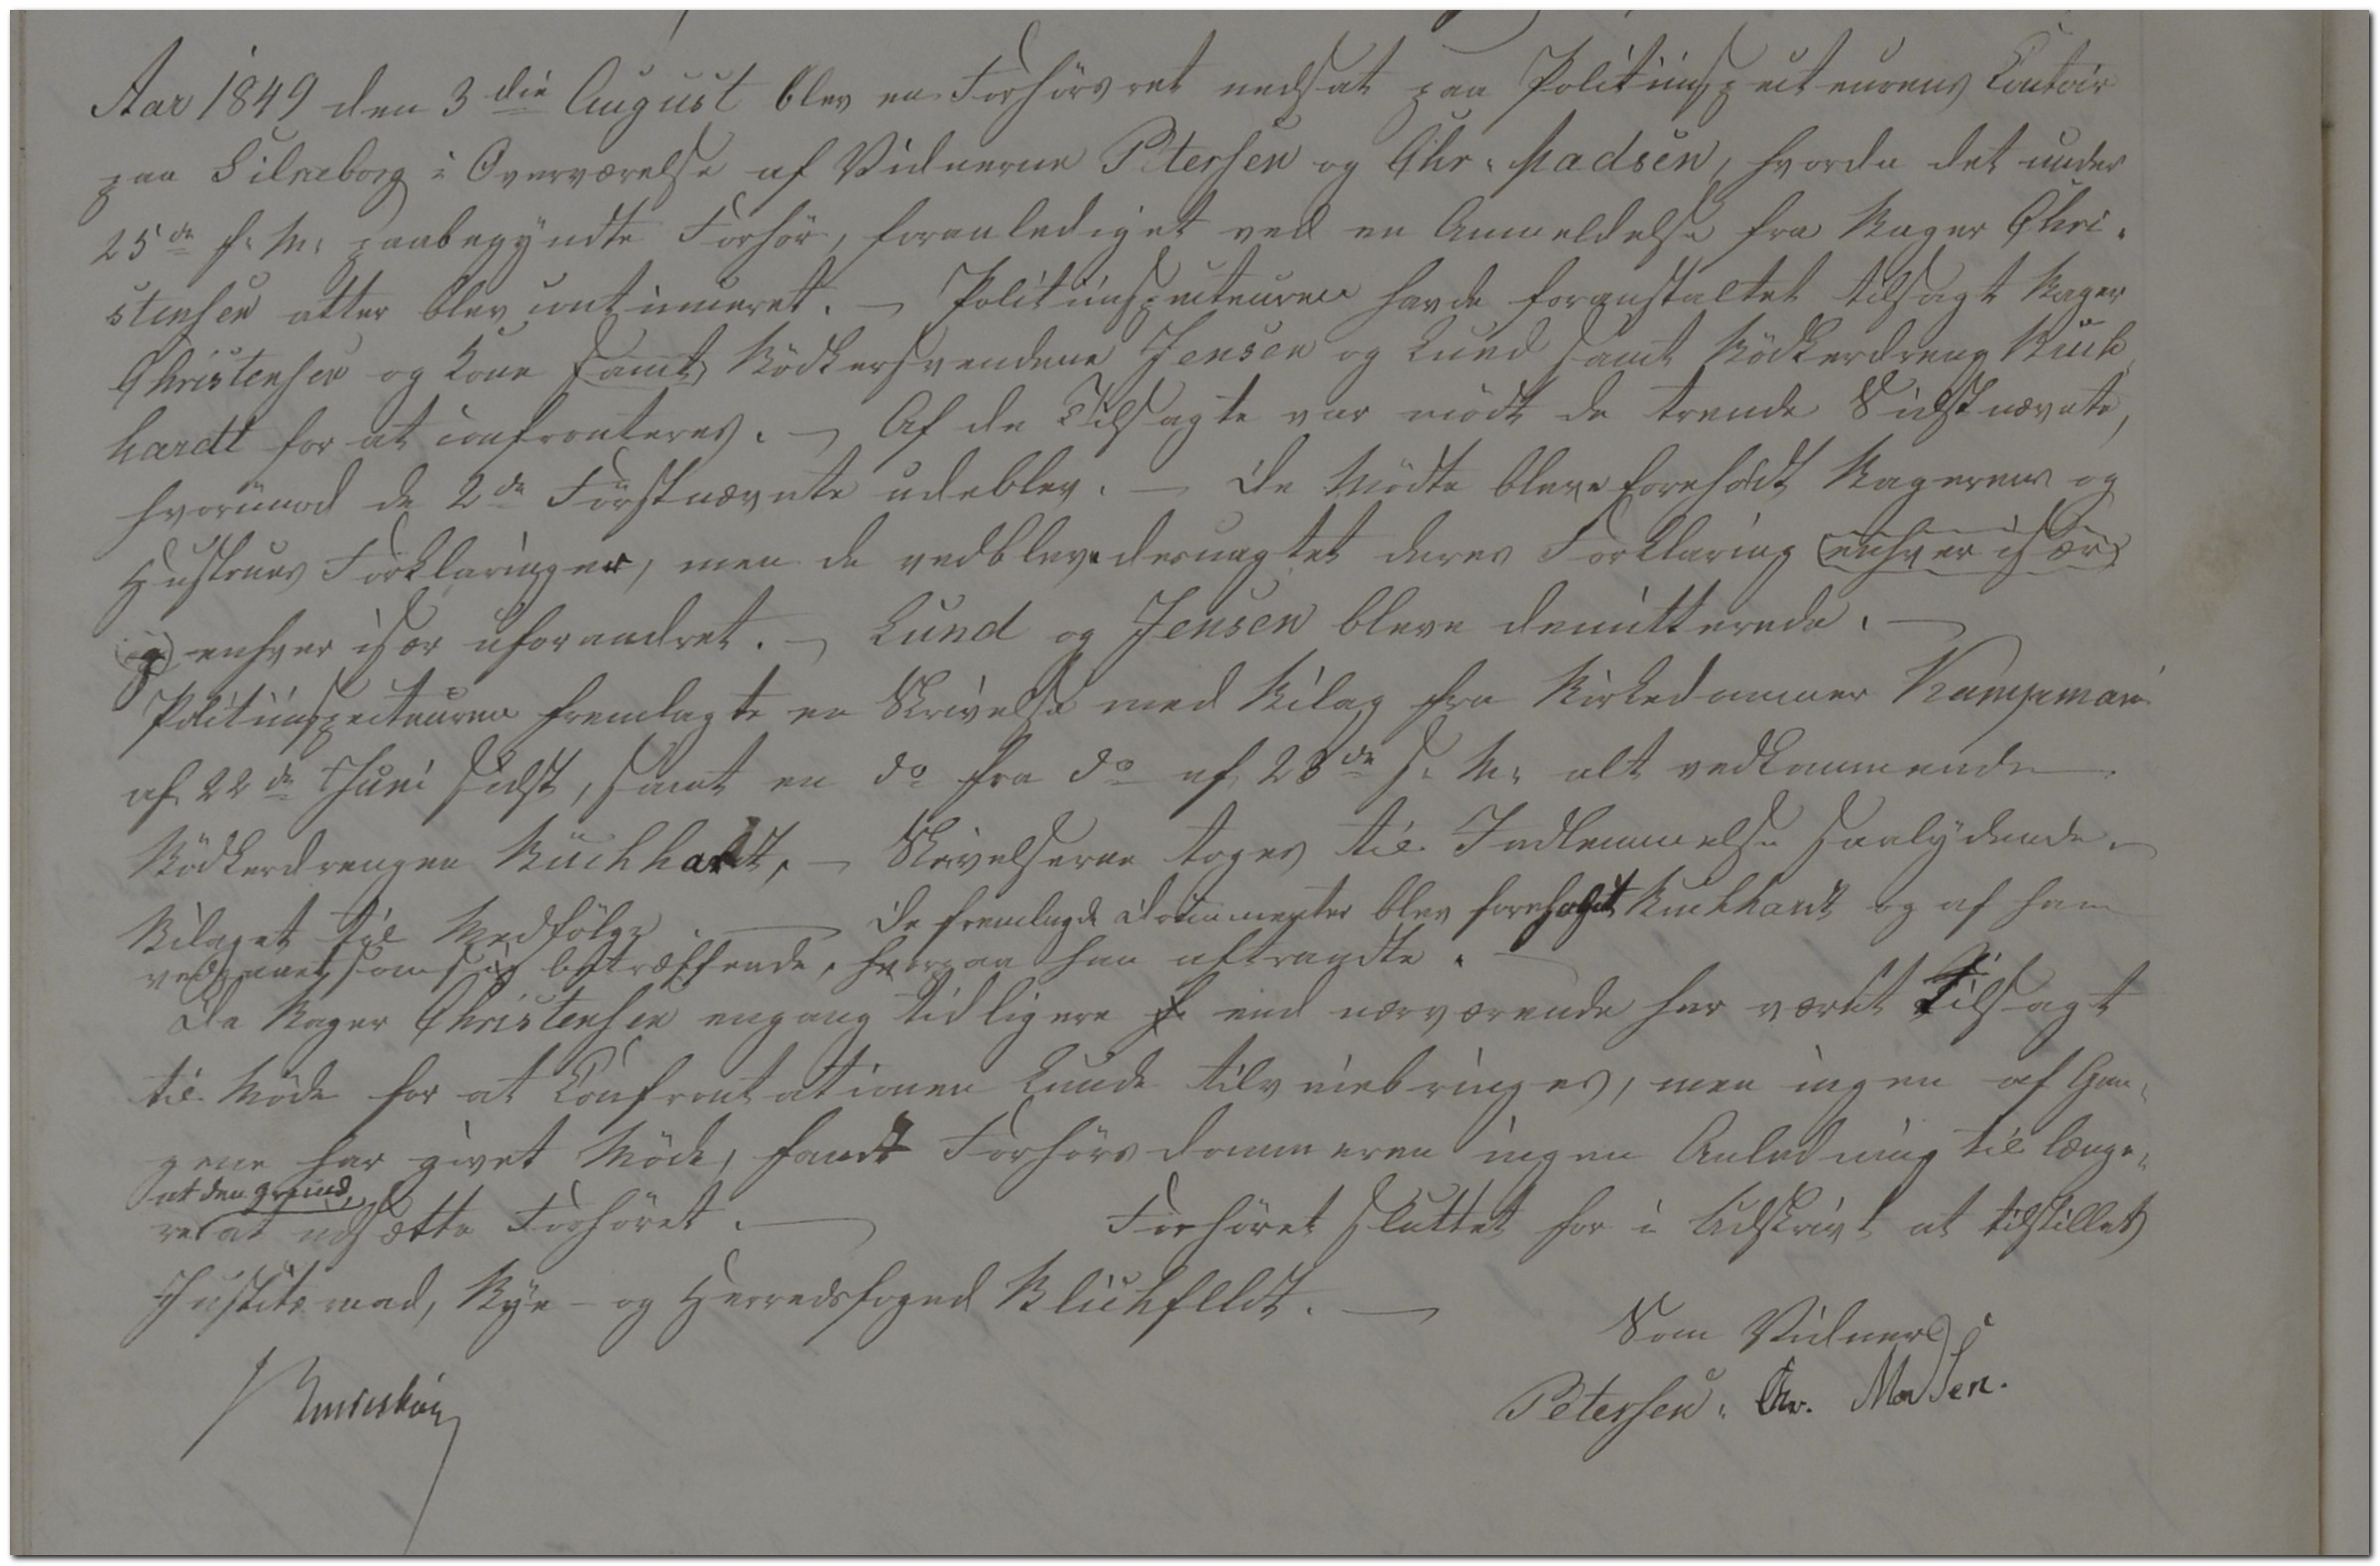 Aar 1849 den 3die August blev en Forhörsret nedsat paa Politiinspecteurens Contoir
paa Silkeborg i Overværelse af Vidnerne Petersen og Chr. Madsen, hvorda det under
25de f. M. paabegyndte Forhör, foranlediget ved en Anmeldelse fra Bager Chri-
stensen atter blev continueret. — Politiinspecteuren havde foranstaltet tilsagt Bager
Christensen og Kone (samt) Bödkersvendene Jensen og Lund samt Bödkerdreng Buch
hardt for at confronteres. — Af de Tilsagte var mödt de trende Sidstnævnte,
hvorimod de 2de Förstnævnte udeblev. — De Mödte bleve foreholdt Bagerens og
Hustrues Forklaringer, men de vedbleve desuagtet deres Forklaring (enhver især)
enhver især uforandret. — Lund og Jensen bleve demitterede. —
Politiinspecteuren fremlagte en Skrivelse med Bilag fra Birkedommer Kampmann
af 22de Juni sidst, samt en do fra do af 28de s. M. alt vedkommende
Bödkerdrengen Buchhardt. — Skrivelserne toges til Indlemmelse saalydende.
Bilaget til Medfölge. — De fremlagde Documenter blev foreholdt Buchhardt og af ham
vedgaaet som sig betræffende, hvorpaa han aftraadte. —
Da Bager Christensen engang tidligere f end nærværende har været Tilsagt
til Möde for at Confrontationen kunde tilveiebringes, men ingen af Gan-
gene har givet Möde, fandt Forhörsdommeren ingen Anledning til længe-
at den grund,
re at udsætte Forhöret. — Forhöret sluttet for i Udskrivt at tilstilles
Justitsraad, Bye- og Herredsfoged Blichfeldt. —
Som Vidner
Petersen. Chr. Madsen.